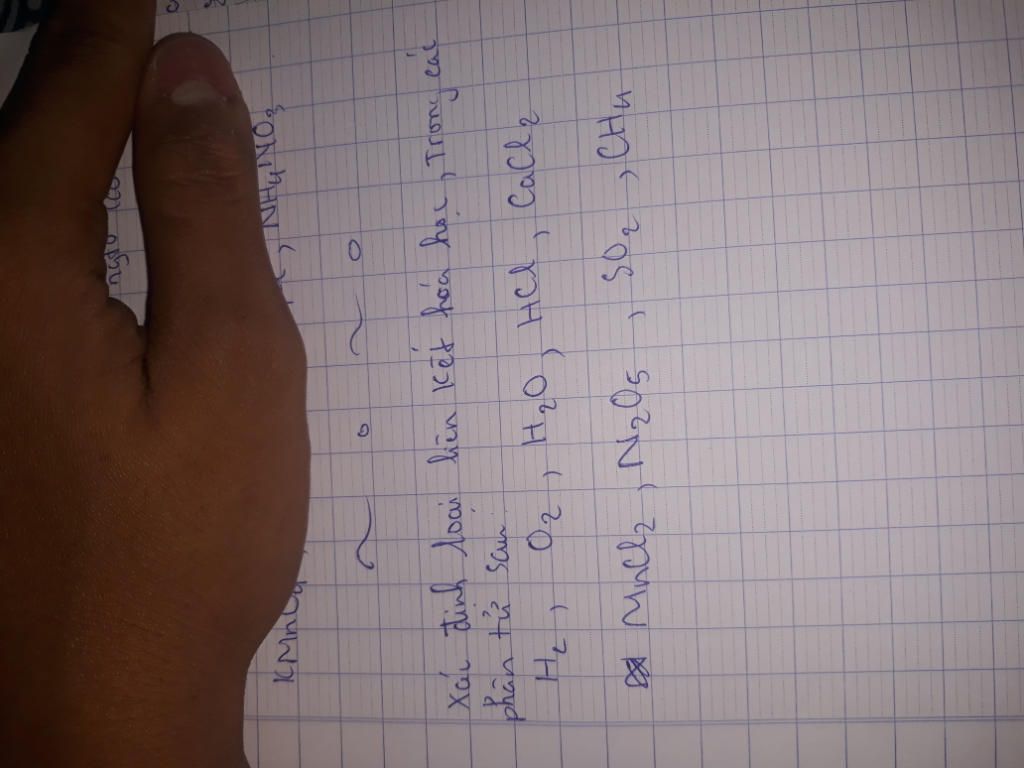 KMnO₄, NH₄NO₃
Xác định loại liên kết hóa học, Trong các
phân tử sau
H₂, O₂, H₂O, HCl, CaCl₂
MnCl₂, N₂O₅, SO₂, CH₄